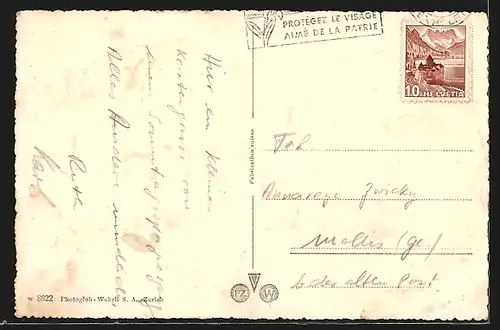 PROTÉGEZ LE VISAGE
AIMÉ DE LA PATRIE
10 HELVETIA
Hier ein kleiner
Kartengruss von
einem Sonntagsspaziergang
Alles Andere mündlich
Ruth
Karl
Fabrication suisse
Frl.
Zwicky
Mollis (gl.)
b. der alten Post
W 8822 Photoglob-Wehrli S. A., Zurich
PZ W